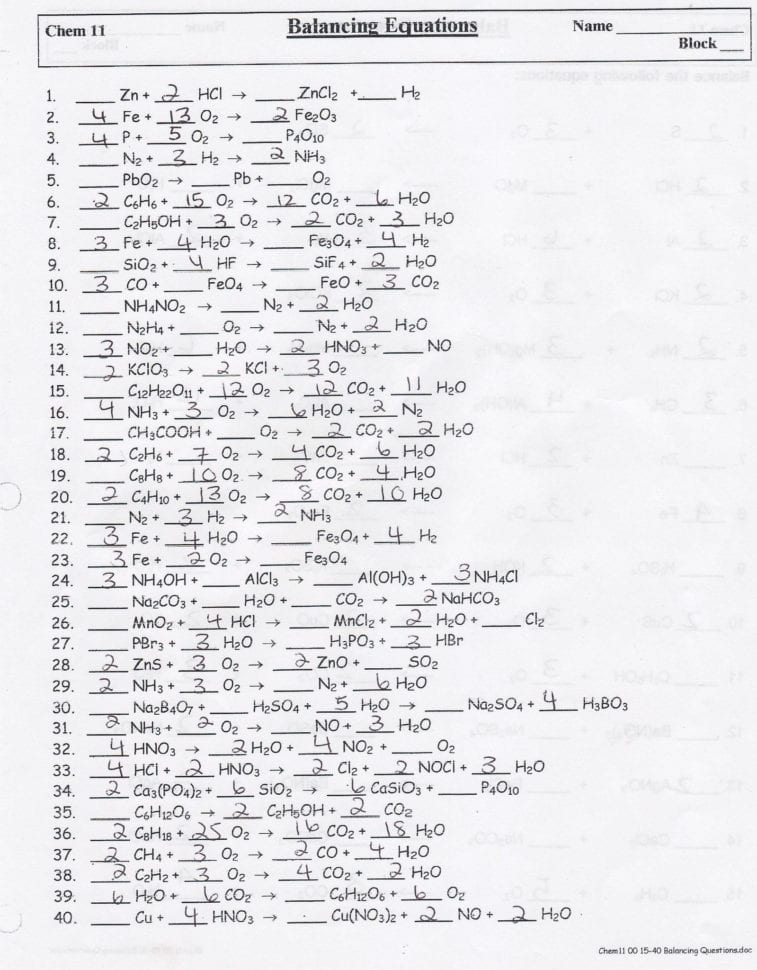 Chem 11 Balancing Equations Name ______
Block ___
1. ____ Zn + 2 HCl → ____ ZnCl₂ + ____ H₂
2. 4 Fe + 13 O₂ → 2 Fe₂O₃
3. 4 P + 5 O₂ → ____ P₄O₁₀
4. ____ N₂ + 3 H₂ → 2 NH₃
5. ____ PbO₂ → ____ Pb + ____ O₂
6. 2 C₆H₆ + 15 O₂ → 12 CO₂ + 6 H₂O
7. ____ C₂H₅OH + 3 O₂ → 2 CO₂ + 3 H₂O
8. 3 Fe + 4 H₂O → ____ Fe₃O₄ + 4 H₂
9. ____ SiO₂ + 4 HF → ____ SiF₄ + 2 H₂O
10. 3 CO + ____ FeO₄ → ____ FeO + 3 CO₂
11. ____ NH₄NO₂ → ____ N₂ + 2 H₂O
12. ____ N₂H₄ + ____ O₂ → ____ N₂ + 2 H₂O
13. 3 NO₂ + ____ H₂O → 2 HNO₃ + ____ NO
14. 2 KClO₃ → 2 KCl + 3 O₂
15. ____ C₁₂H₂₂O₁₁ + 12 O₂ → 12 CO₂ + 11 H₂O
16. 4 NH₃ + 3 O₂ → 6 H₂O + 2 N₂
17. ____ CH₃COOH + ____ O₂ → 2 CO₂ + 2 H₂O
18. 2 C₂H₆ + 7 O₂ → 4 CO₂ + 6 H₂O
19. ____ C₈H₈ + 10 O₂ → 8 CO₂ + 4 H₂O
20. 2 C₄H₁₀ + 13 O₂ → 8 CO₂ + 10 H₂O
21. ____ N₂ + 3 H₂ → 2 NH₃
22. 3 Fe + 4 H₂O → ____ Fe₃O₄ + 4 H₂
23. 3 Fe + 2 O₂ → ____ Fe₃O₄
24. 3 NH₄OH + ____ AlCl₃ → ____ Al(OH)₃ + 3 NH₄Cl
25. ____ Na₂CO₃ + ____ H₂O + ____ CO₂ → 2 NaHCO₃
26. ____ MnO₂ + 4 HCl → ____ MnCl₂ + 2 H₂O + ____ Cl₂
27. ____ PBr₃ + 3 H₂O → ____ H₃PO₃ + 3 HBr
28. 2 ZnS + 3 O₂ → 2 ZnO + ____ SO₂
29. 2 NH₃ + 3 O₂ → ____ N₂ + 6 H₂O
30. ____ Na₂B₄O₇ + ____ H₂SO₄ + 5 H₂O → ____ Na₂SO₄ + 4 H₃BO₃
31. 2 NH₃ + 2 O₂ → ____ NO + 3 H₂O
32. 4 HNO₃ → 2 H₂O + 4 NO₂ + ____ O₂
33. 4 HCl + 2 HNO₃ → 2 Cl₂ + 2 NOCl + 3 H₂O
34. 2 Ca₃(PO₄)₂ + 6 SiO₂ → 6 CaSiO₃ + ____ P₄O₁₀
35. ____ C₆H₁₂O₆ → 2 C₂H₅OH + 2 CO₂
36. 2 C₈H₁₈ + 25 O₂ → 16 CO₂ + 18 H₂O
37. 2 CH₄ + 3 O₂ → 2 CO + 4 H₂O
38. 2 C₂H₂ + 3 O₂ → 4 CO₂ + 2 H₂O
39. 6 H₂O + 6 CO₂ → ____ C₆H₁₂O₆ + 6 O₂
40. ____ Cu + 4 HNO₃ → ____ Cu(NO₃)₂ + 2 NO + 2 H₂O
Chem11 OO 15-40 Balancing Questions.doc